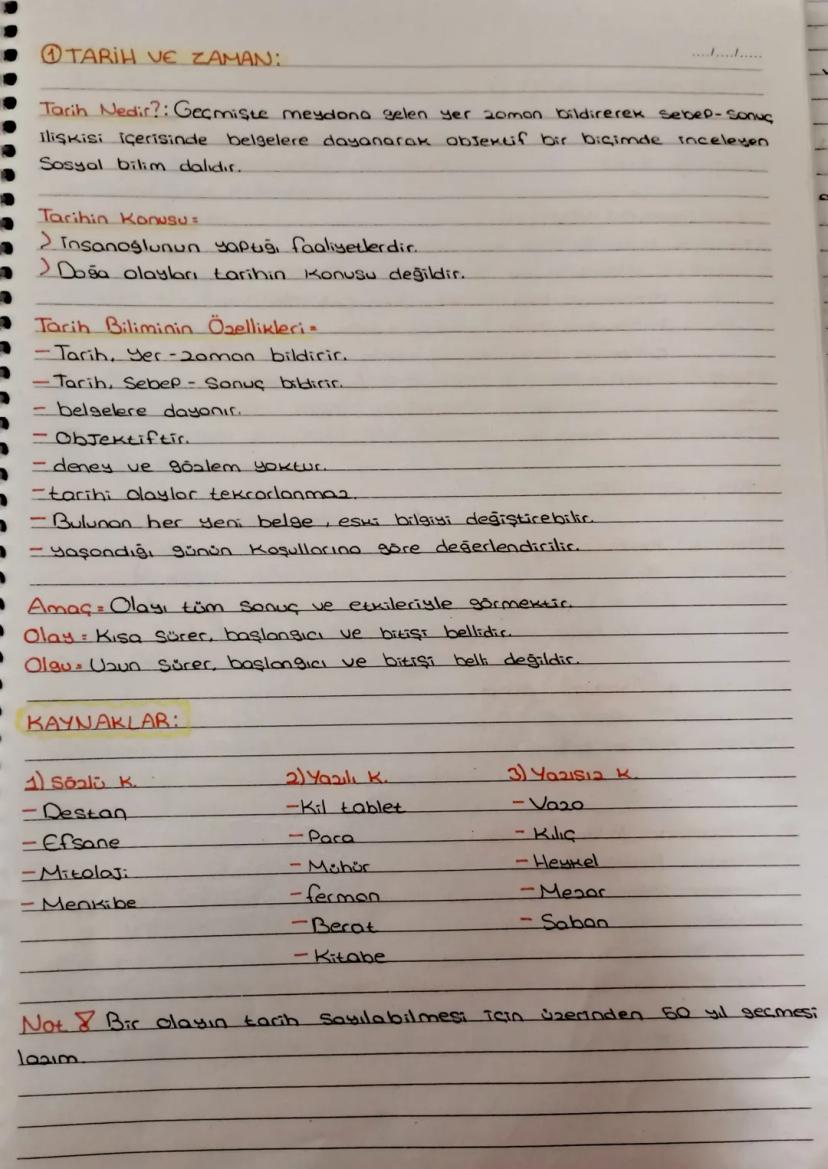 ① TARİH VE ZAMAN:
..../..../.....
Tarih Nedir?: Geçmişte meydana gelen yer zaman bildirerek sebep-sonuç
ilişkisi içerisinde belgelere dayanarak objektif bir biçimde inceleyen
Sosyal bilim dalıdır.
Tarihin Konusu:
> İnsanoğlunun yaptığı faaliyetlerdir.
> Doğa olayları tarihin konusu değildir.
Tarih Biliminin Özellikleri:
- Tarih, yer-zaman bildirir.
- Tarih, Sebep - Sonuç bildirir.
- belgelere dayanır.
- Objektiftir.
- deney ve gözlem yoktur.
- tarihi olaylar tekrarlanmaz.
- Bulunan her yeni belge, eski bilgiyi değiştirebilir.
- yaşandığı günün koşullarına göre değerlendirilir.
Amaç: Olayı tüm sonuç ve etkileriyle görmektir.
Olay: Kısa Sürer, başlangıcı ve bitişi bellidir.
Olgu: Uzun Sürer, başlangıcı ve bitişi belli değildir.
KAYNAKLAR:
1) Sözlü K. 2) Yazılı K. 3) Yazısız K.
- Destan - Kil tablet - Vazo
- Efsane - Para - Kılıç
- Mitoloji - Mühür - Heykel
- Menkibe - ferman - Mezar
- Berat - Saban
- Kitabe
Not: Bir olayın tarih sayılabilmesi için üzerinden 50 yıl geçmesi
lazım.